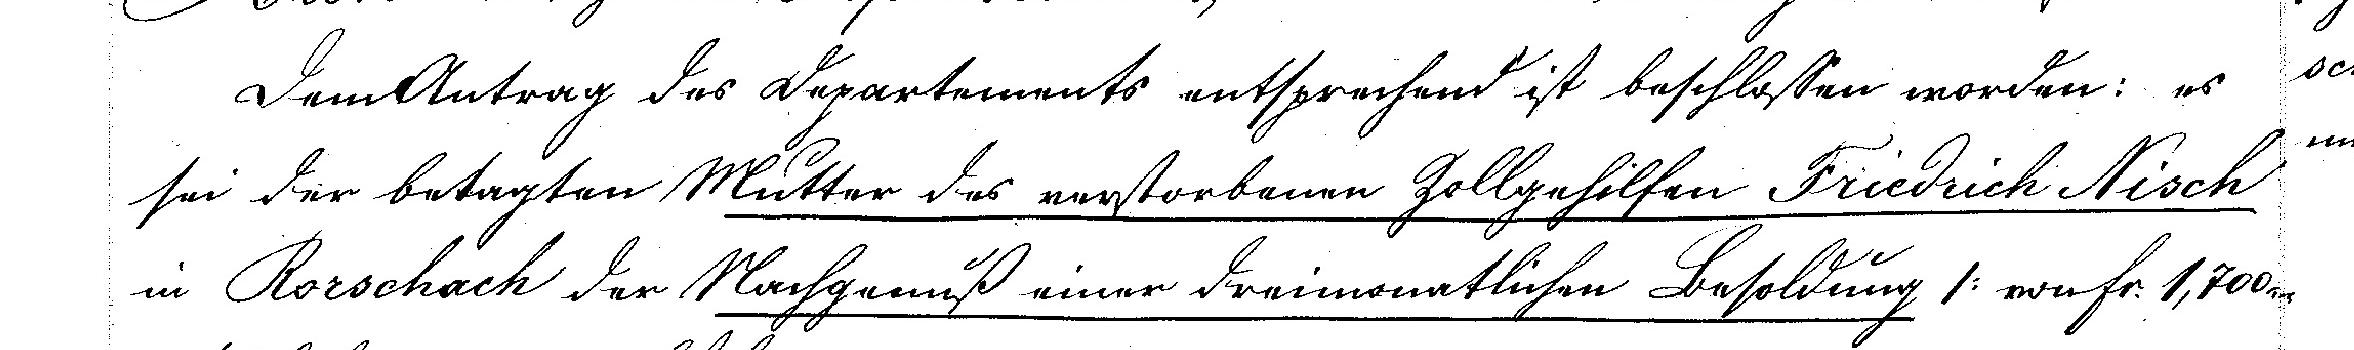 Dem Antrag des Departements entsprechend ist beschlossen worden: es
sei der betagten Mutter des verstorbenen Zollgehilfen Friedrich Nisch
in Rorschach der Nachgenuß einer dreimonatlichen Besoldung /: von fr. 1,700.